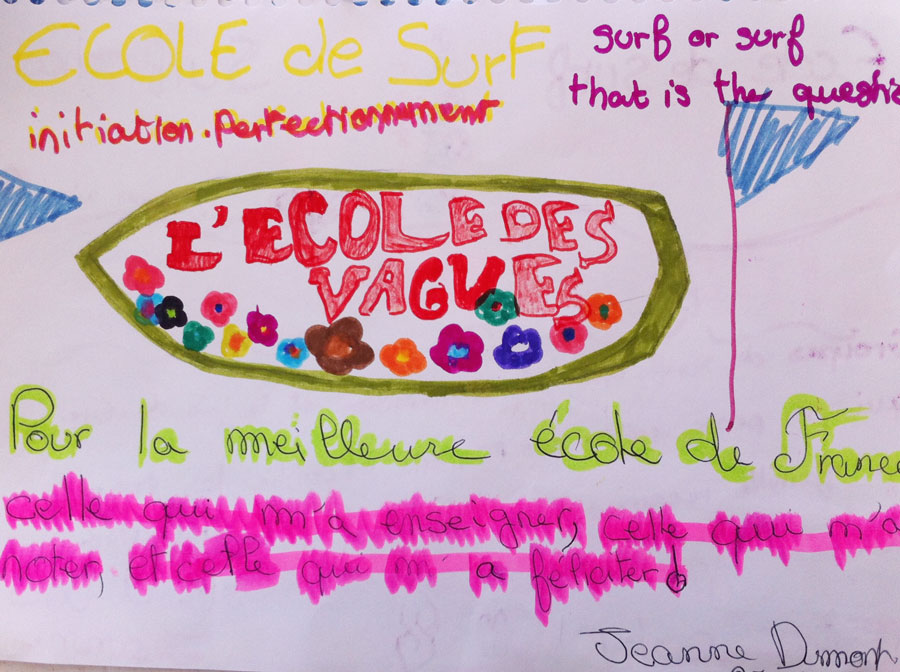 ECOLE de Surf
surf or surf
that is the
initiation. Perfectionnement
L'ECOLE DES
VAGUES
Pour la meilleure école de France
celle qui m'a enseigner, celle qui m'a
noter, et celle qui m'a féliciter!
Jeanne Dumont